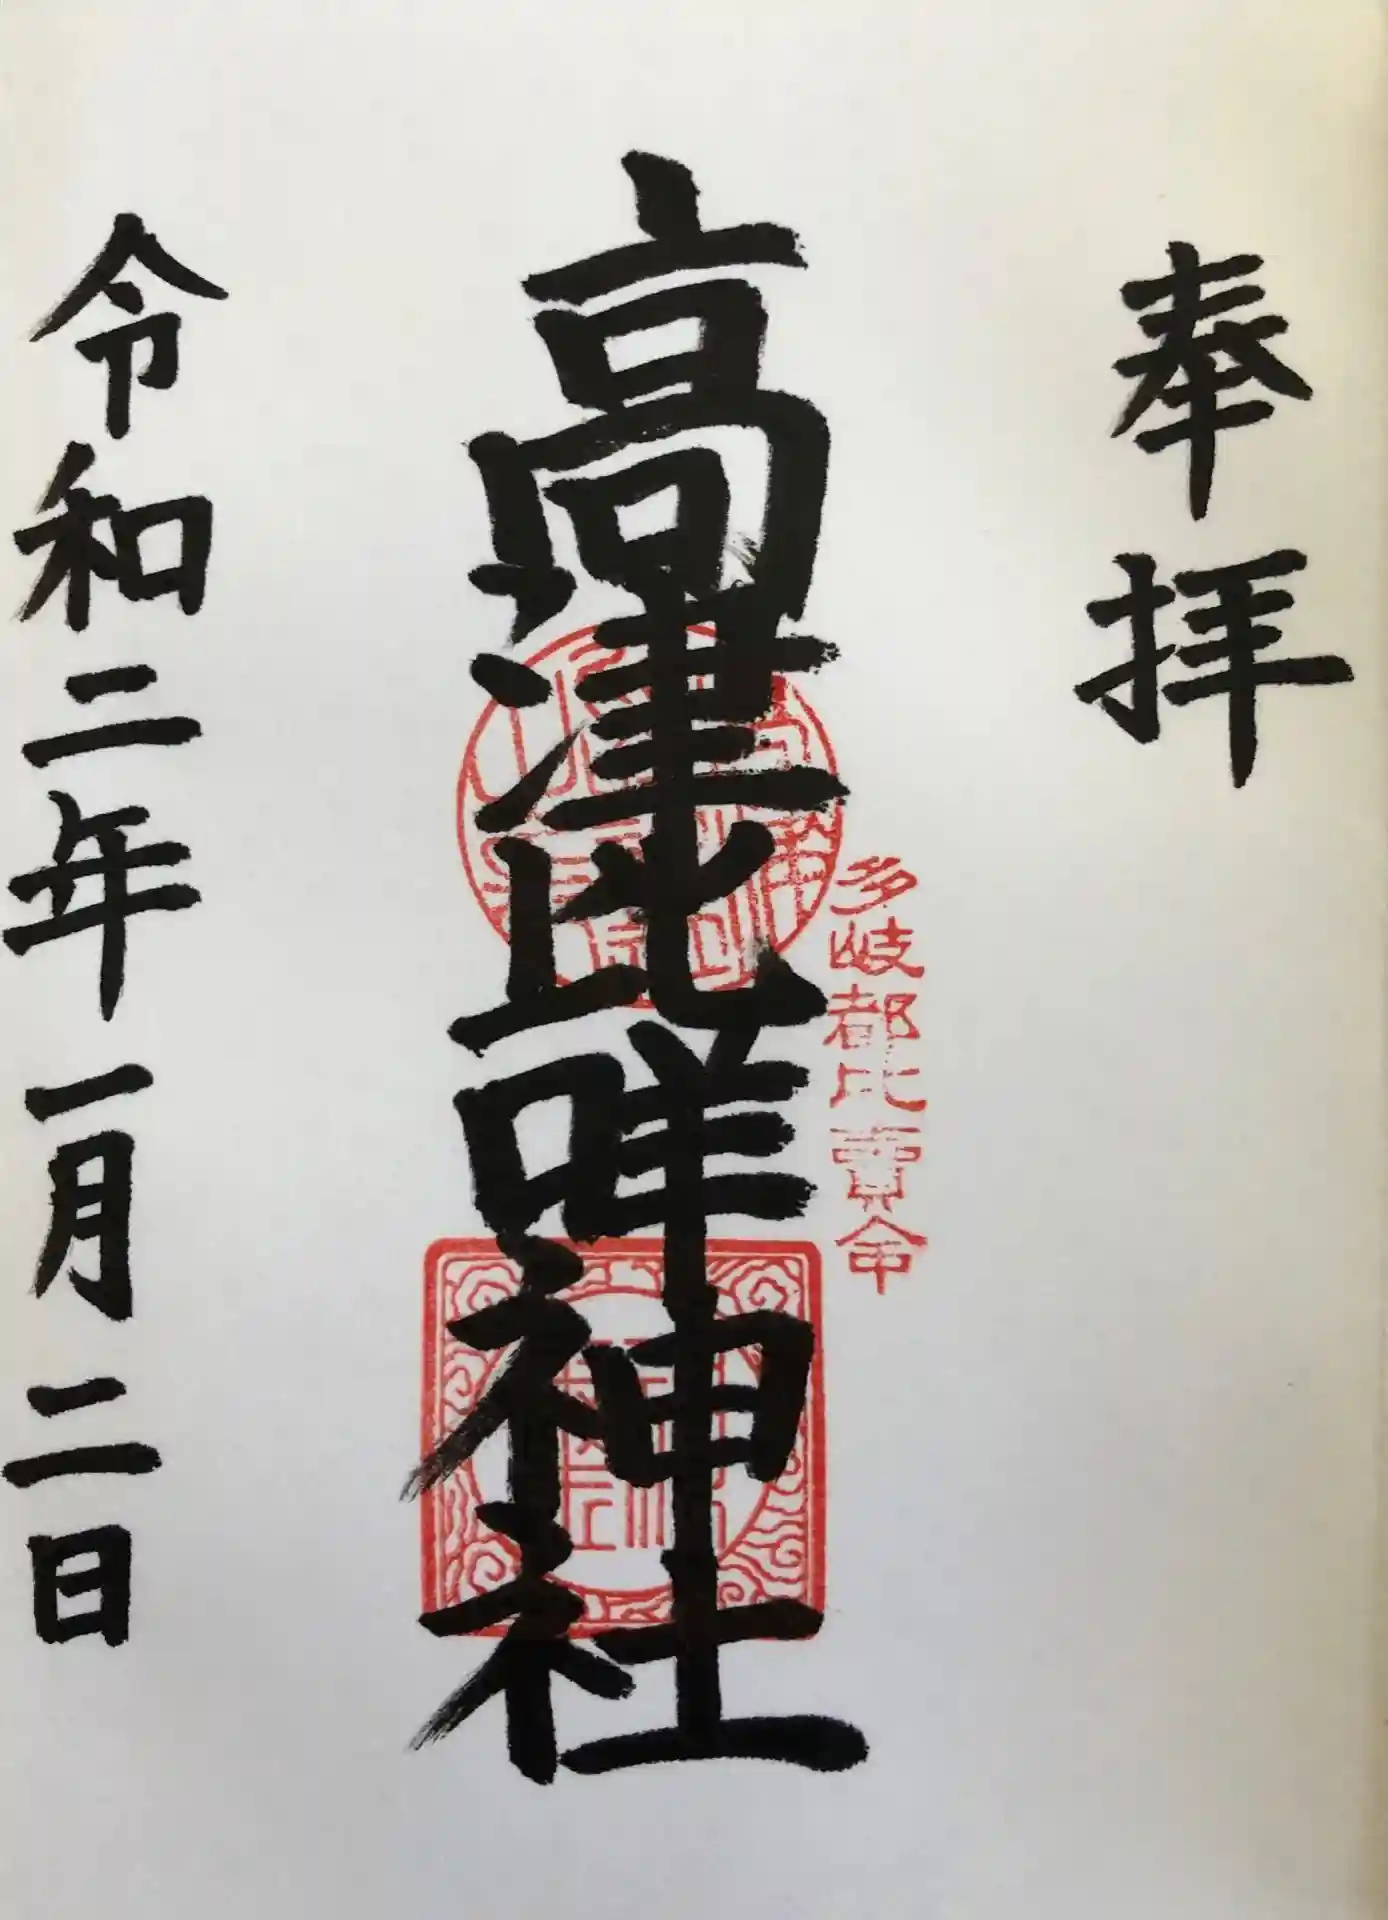 奉拝
多岐都比賣命
高津比咩神社
令和二年一月二日